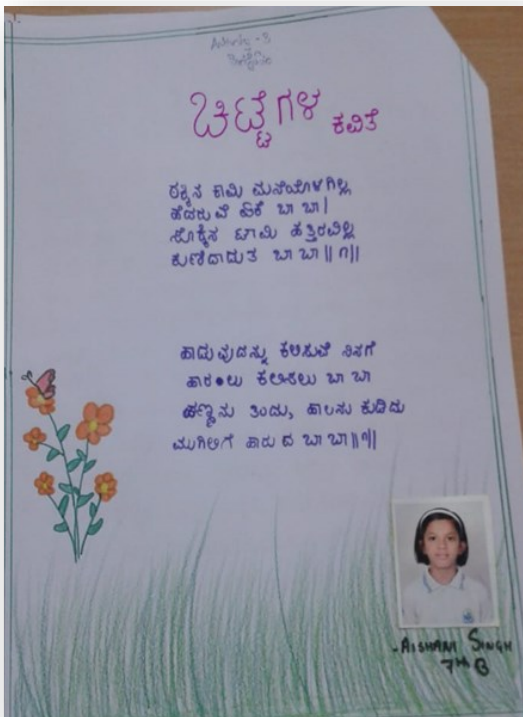 1.
Activity - 3
ಚಿಟ್ಟೆಗಳ ಕವಿತೆ
ಠಕ್ಕಿನ ಕಾಮಿ ಮನೆಯೊಳಗಿಲ್ಲ
ಹೆದರುವೆ ಏಕೆ ಬಾ ಬಾ|
ಸೊಕ್ಕಿನ ಟಾಮಿ ಹತ್ತಿರವಿಲ್ಲ
ಕುಣಿದಾಡುತ ಬಾ ಬಾ || ೧||
ಹಾಡುವುದನ್ನು ಕಲಿಸುವೆ ನಿನಗೆ
ಹಾರಲು ಕಲಿಸಲು ಬಾ ಬಾ
ಹಣ್ಣನು ತಿಂದು, ಹಾಲನು ಕುಡಿದು
ಮುಗಿಲಿಗೆ ಹಾರುವ ಬಾ ಬಾ||೧||
-AISHANI SINGH
7th B